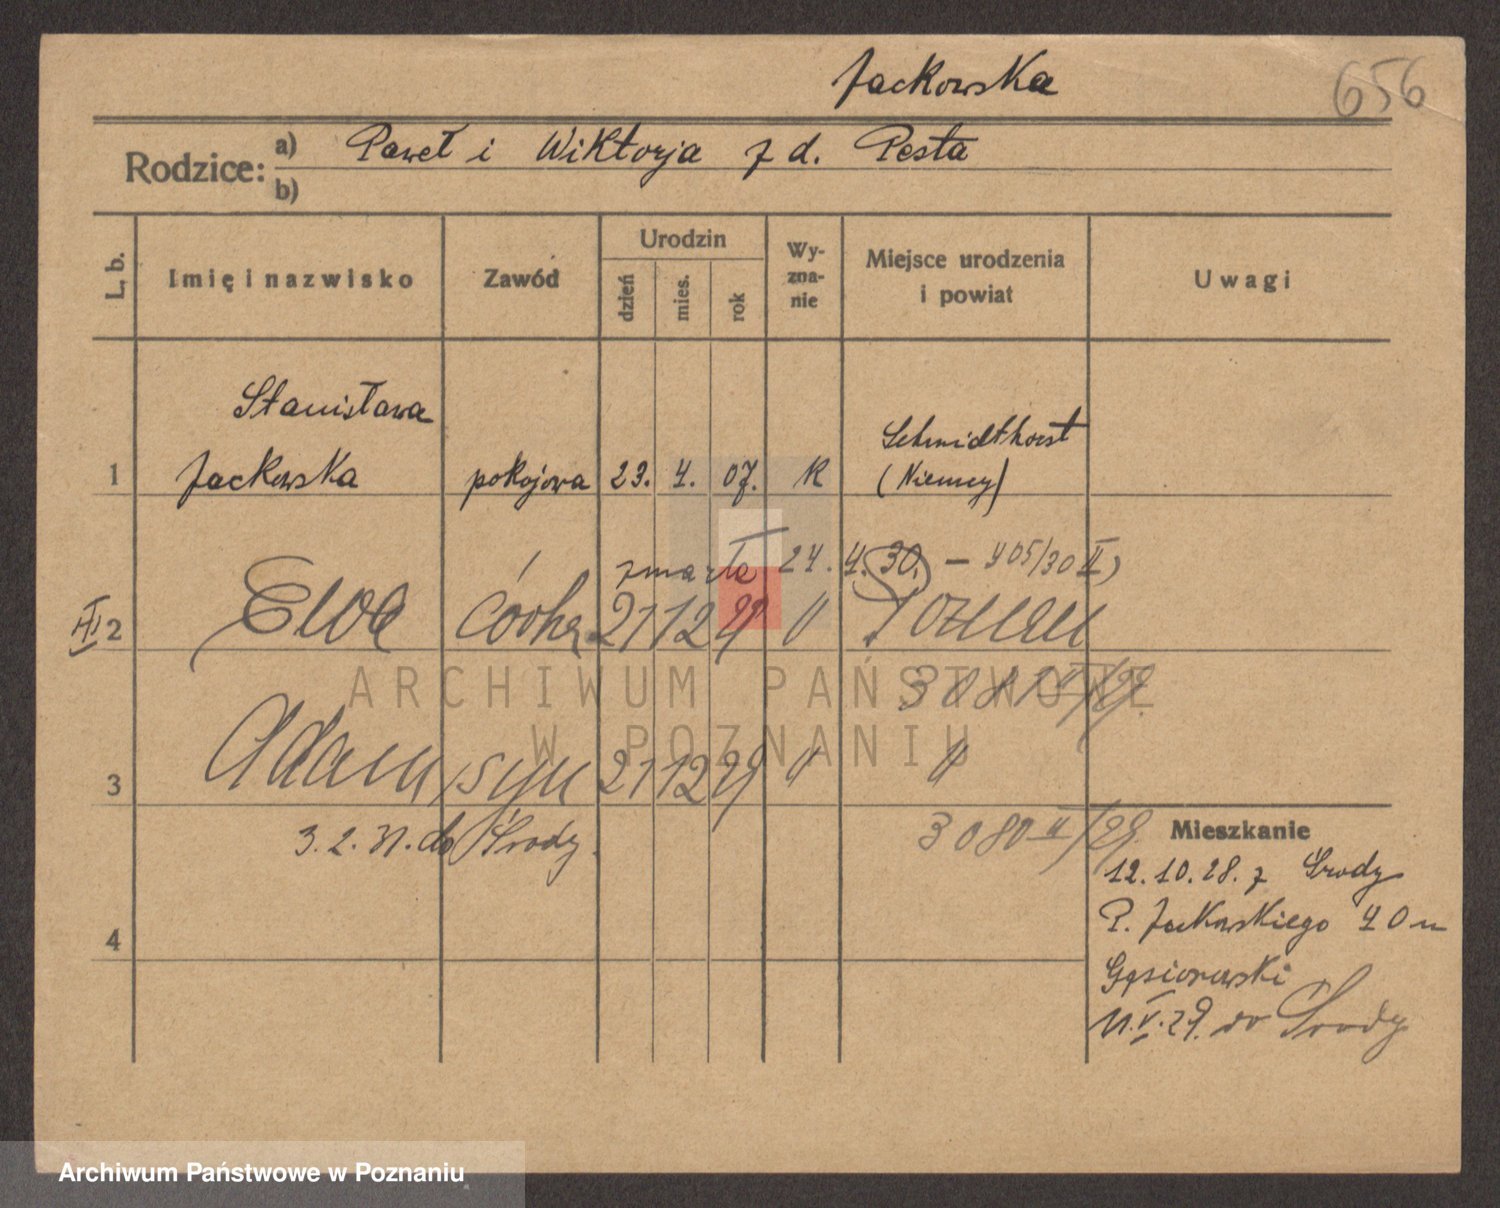 Jackowska
656
Rodzice:
a) Paweł i Wiktorja z d. Pesta
b)
L. b.
Imię i nazwisko
Zawód
Urodzin
dzień
mies.
rok
Wy-
zna-
nie
Miejsce urodzenia
i powiat
Uwagi
Stanisława
Schmidthorst
1 Jackowska pokojowa 23. 4. 07. R (Niemcy)
zmarła 24. 4. 30. – 405/30 II)
2 Ewa córka 21 12 29 " Poznań
3081 II/29.
ARCHIWUM PAŃSTWOWE
W POZNANIU
3 Adam syn 21 12 29 " "
3. 2. 31. do Środy.
3080 II/29.
4
Mieszkanie
12. 10. 28. z Środy
P. Jackowskiego 40 u
Gąsiorowski
11. V. 29. do Środy
Archiwum Państwowe w Poznaniu